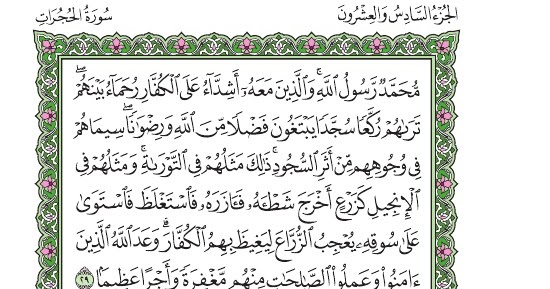 الجُزْءُ السَّادِسُ وَالعِشْرُونَ
سُورَةُ الحُجُرَاتِ
مُّحَمَّدٌ رَّسُولُ ٱللَّهِۚ وَٱلَّذِينَ مَعَهُۥٓ أَشِدَّآءُ عَلَى ٱلْكُفَّارِ رُحَمَآءُ بَيْنَهُمْۖ
تَرَىٰهُمْ رُكَّعًا سُجَّدًا يَبْتَغُونَ فَضْلًا مِّنَ ٱللَّهِ وَرِضْوَٰنًاۖ سِيمَاهُمْ
فِى وُجُوهِهِم مِّنْ أَثَرِ ٱلسُّجُودِۚ ذَٰلِكَ مَثَلُهُمْ فِى ٱلتَّوْرَىٰةِۚ وَمَثَلُهُمْ فِى
ٱلْإِنجِيلِ كَزَرْعٍ أَخْرَجَ شَطْـَٔهُۥ فَـَٔازَرَهُۥ فَٱسْتَغْلَظَ فَٱسْتَوَىٰ
عَلَىٰ سُوقِهِۦ يُعْجِبُ ٱلزُّرَّاعَ لِيَغِيظَ بِهِمُ ٱلْكُفَّارَۗ وَعَدَ ٱللَّهُ ٱلَّذِينَ
ءَامَنُوا۟ وَعَمِلُوا۟ ٱلصَّٰلِحَٰتِ مِنْهُم مَّغْفِرَةً وَأَجْرًا عَظِيمًۢا ٢٩